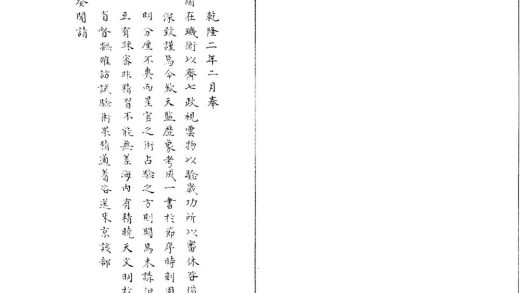 乾隆二年二月奉
在璣衡以齊七政視雲物以驗歲功所以審休咎備
深致謹焉今欽天監歷象考成一書於節序時刻固
明分度不爽而星官之術占驗之方則闕焉未講但
互有疎密非精習不能無差海內有精曉天文明於
省督撫確訪試驗術果精通着咨送來京該部
奏聞請